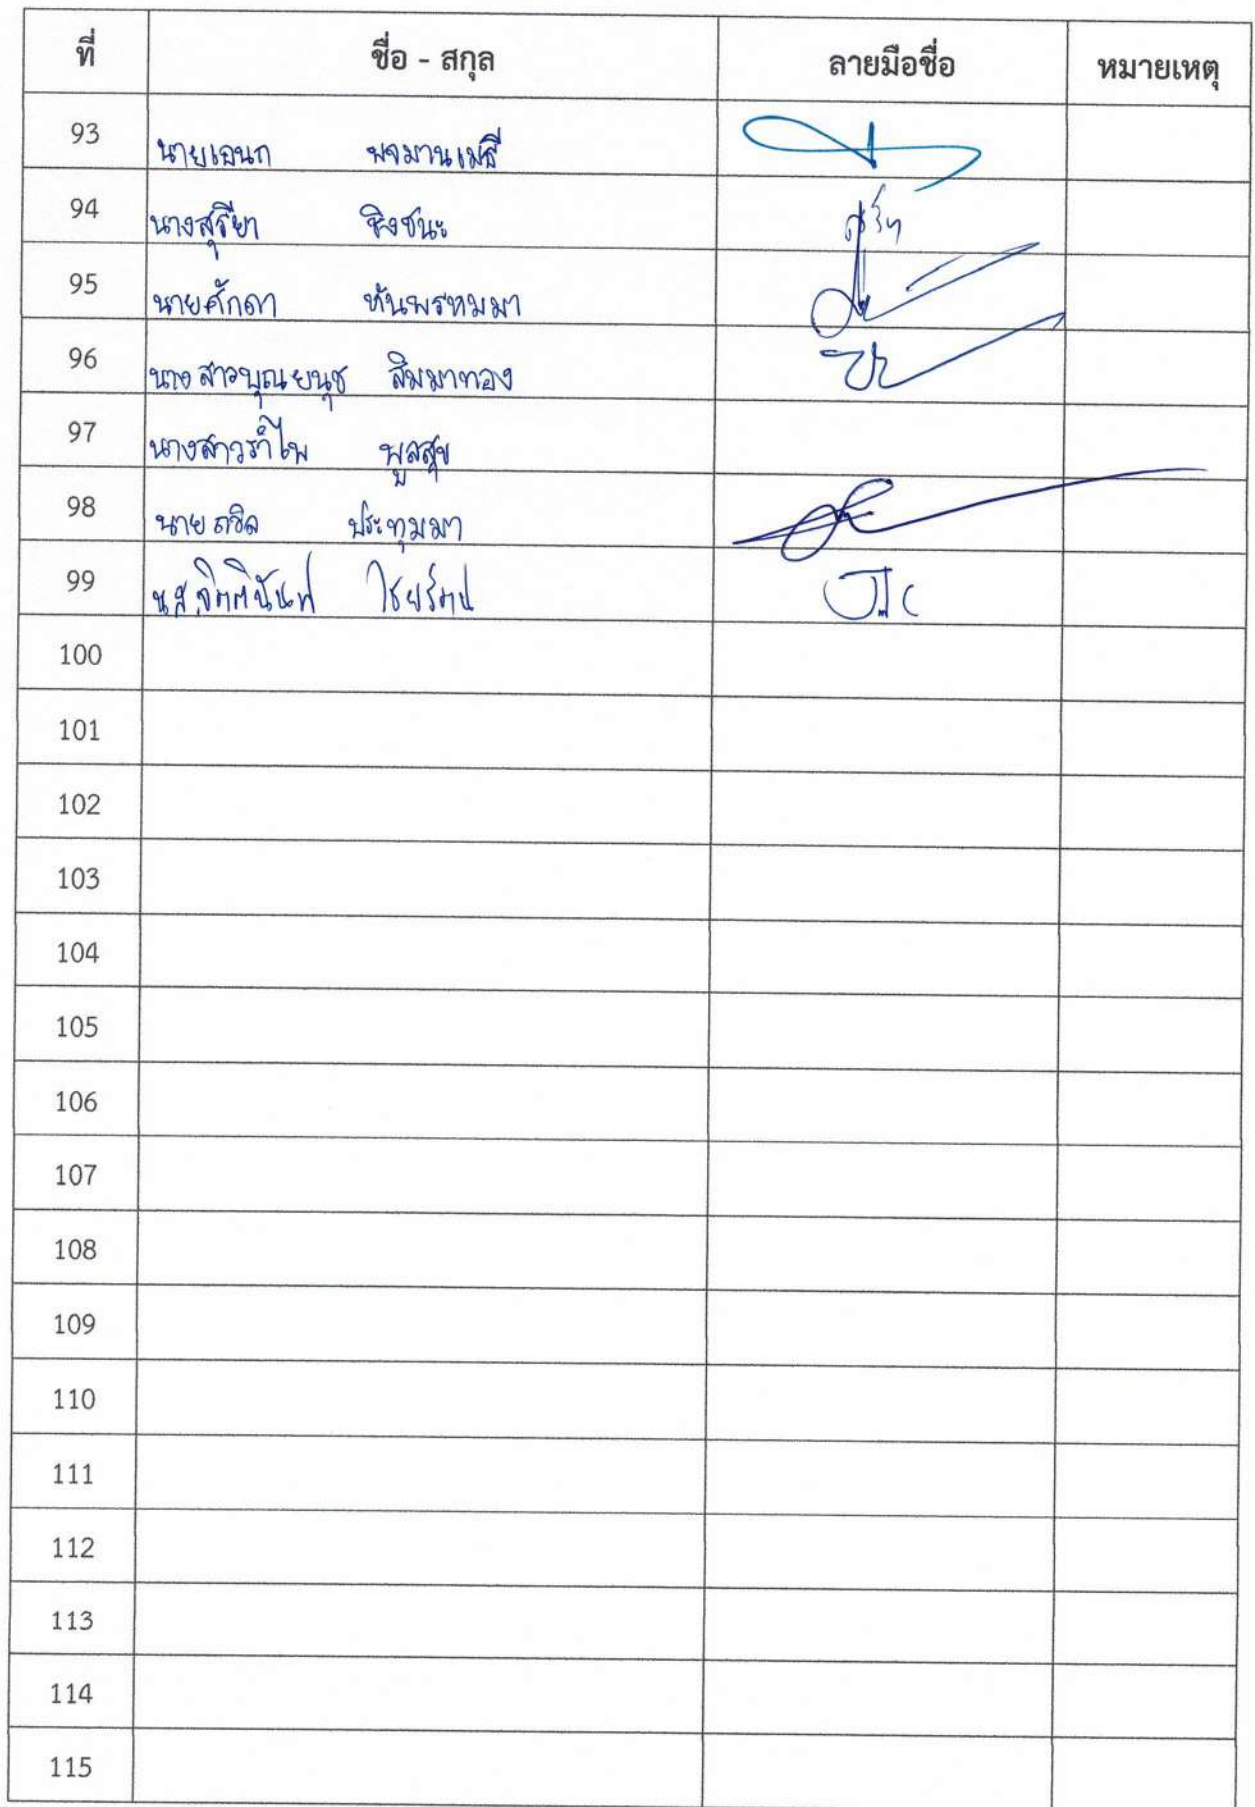 ที่ ชื่อ - สกุล ลายมือชื่อ หมายเหตุ
93 นายเอนก พจมานเมธี
94 นางสุริยา ชิงชนะ
95 นายศักดา หันพรหมมา
96 นางสาวบุณยนุช สิมมาทอง
97 นางสาวรำไพ พูลสุข
98 นายถวิล ประทุมมา
99 น.ส.จิตตินันท์ ไชยรัตน์
100
101
102
103
104
105
106
107
108
109
110
111
112
113
114
115